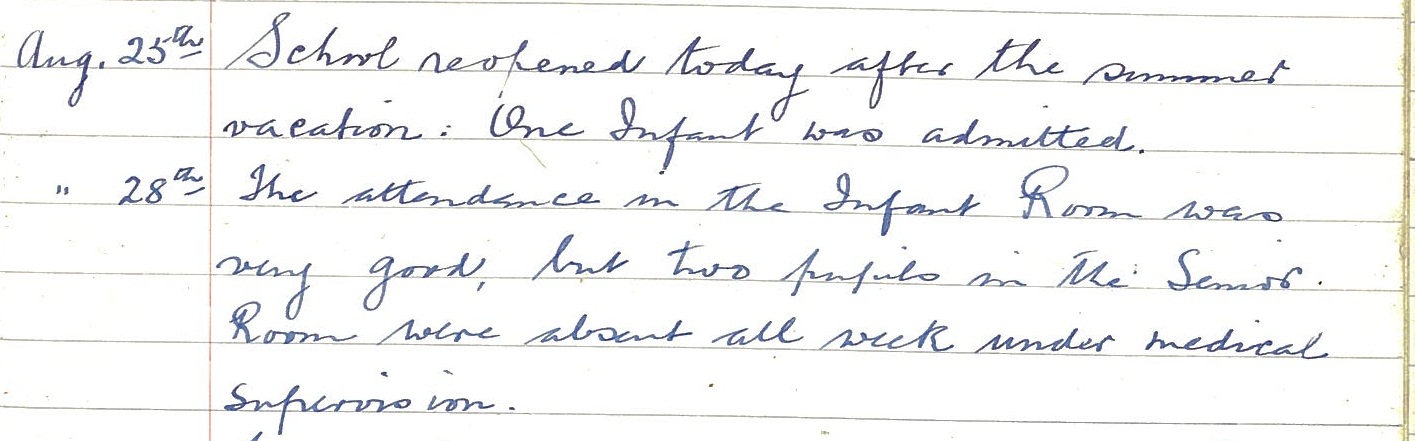 Aug. 25th School reopened today after the summer
vacation: One Infant was admitted.
" 28th The attendance in the Infant Room was
very good, but two pupils in the Senior
Room were absent all week under medical
supervision.